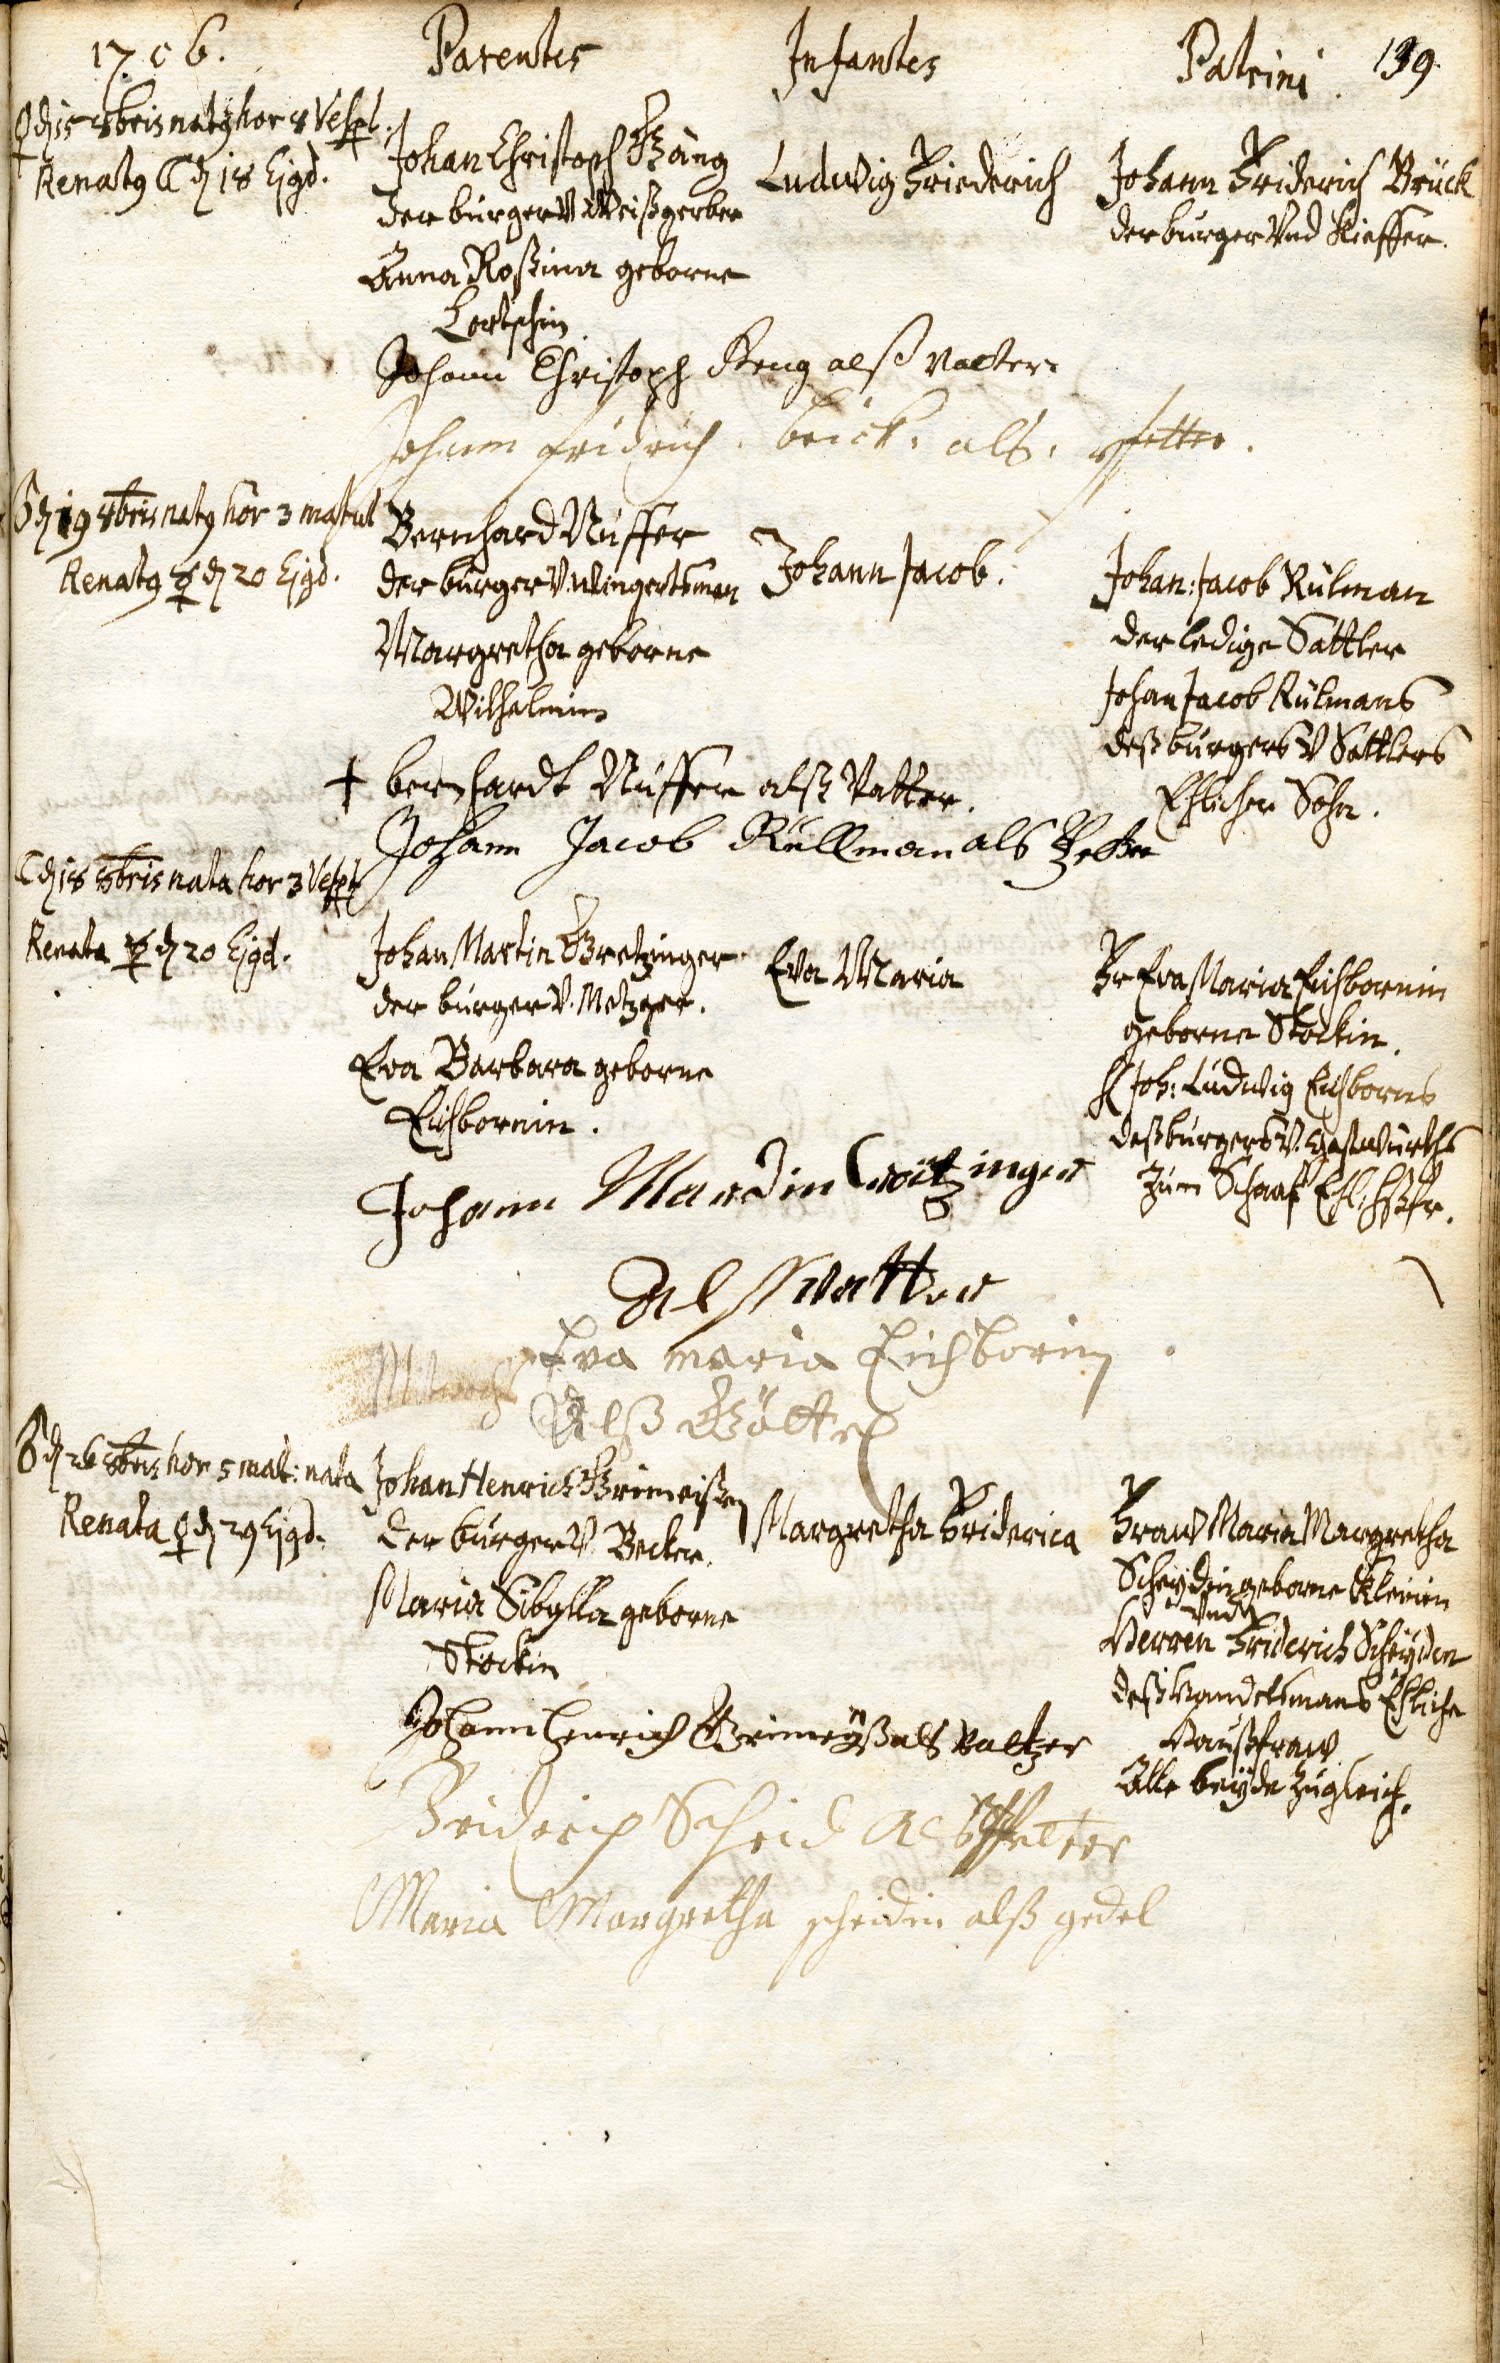 1706. Parentes Infantes Patrini. 139.
♀ d 15 8bris nat9 hor 8 Vesp.
Renat9 ☾ d 18 Ejqd.
Johan Christoph Gäng
der burger V Weißgerber
Anna Roßina geborne
Lortschin
Ludwig Friederich
Johann Friderich Brück
der burger Vnd Kieffer.
Johann Christoph Keng alß vatter
Johann fridrich. brück. als. pfetter.
♂ d 19 8bris nat9 hor 3 matut
Renat9 ☿ d 20 Ejqd.
Bernhard Nüffer
der burger V. Wingertsman
Margretha geborne
Wilhelmin
Johann Jacob.
Johan: Jacob Rülman
der ledige Sattler
Johan Jacob Rülmans
deß burgers V Sattlers
Ehlicher Sohn.
+ bernhardt Nüffer alß Vatter.
Johann Jacob Rullman als Petter
☾ d 18 8bris nata hor 3 Vesp
Renata ☿ d 20 Ejqd.
Johan Martin Gretzinger
der burger V. Metzger.
Eva Barbara geborne
Eichbornin.
Eva Maria
Fr Eva Maria Eichbornin
geborne Stockin.
H Joh: Ludwig Eichborns
deß burgers V. Gastwürths
zum Schaaf Ehl: Hßfr.
Johann Mardin Crötzinger
Alß vatter
Eva maria Eichborin
Alß Göttel
♂ d 26 8bris hor 5 mat: nata
Renata ♀ d 29 Ejqd.
Johan Henrich Grimeißen
der burger V. Becker.
Maria Sibylla geborne
Stöckin
Margretha Friderica
Fraw Maria Margretha
Scheydin geborne Kleinin
Vnd
Herren Friderich Scheyden
deß Handelsmans Ehliche
Haußfraw
Alle beyde zugleich.
Johann henrich Grimeyß als vatter
Friderich Scheid Als Pfetter
Maria Margretha scheidin alß gedel